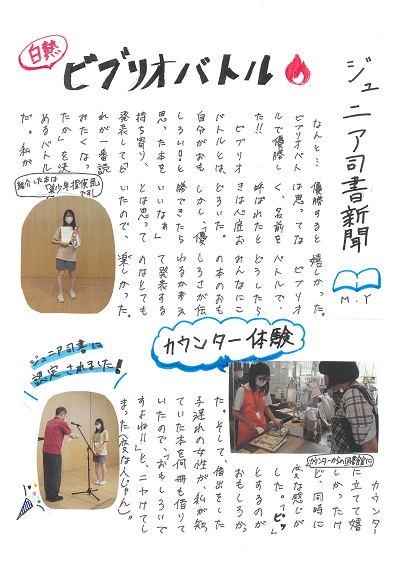 白熱
ビブリオバトル
ジュニア司書新聞
M.Y
なんと…
ビブリオバト
ルで優勝し
た!!
ビブリオ
バトルとは、
自分がおも
しろい!と
思った本を
持ち寄り、
発表してど
れが一番読
みたくなっ
たか」を決
めるバトル
だ。私が
優勝すると
は思ってな
く、名前を
呼ばれたと
きは心底お
どろいた。
しかし、「優
勝できたら
いいなぁ」
とは思って
いたので、
嬉しかった。
ビブリオ
バトルで、
どうしたら
みんなにこ
の本のおも
しろさが伝
わるか考え
て発表する
のはとても
楽しかった。
紹介した本は「美少年探偵団」
です!
カウンター体験
ジュニア司書に
認定されました!
カウンター
に立てて嬉
しかったけ
ど、同時に
変な感じが
した。「ピッ」
とするのが
おもしろか
った。そして、借出をした
子連れの女性が、私が知
っていた本を何冊も借りて
いたので、「おもしろいで
すよね!!」と、ニヤけてし
まった(変な人じゃん)。